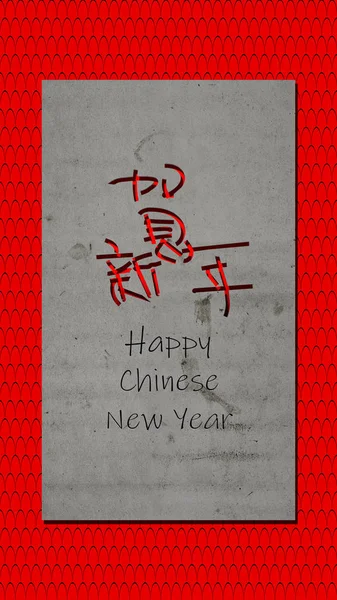 賀
新年
Happy
Chinese
New Year